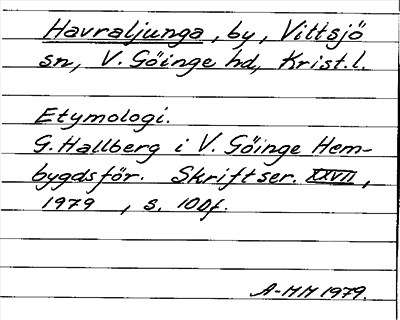 Havraljunga, by, Vittsjö
sn, V. Göinge hd, Krist. l.
Etymologi.
G. Hallberg i V. Göinge Hem-
bygdsför. Skriftser. XXVII,
1979, s. 10 Df.
A-MM 1979.